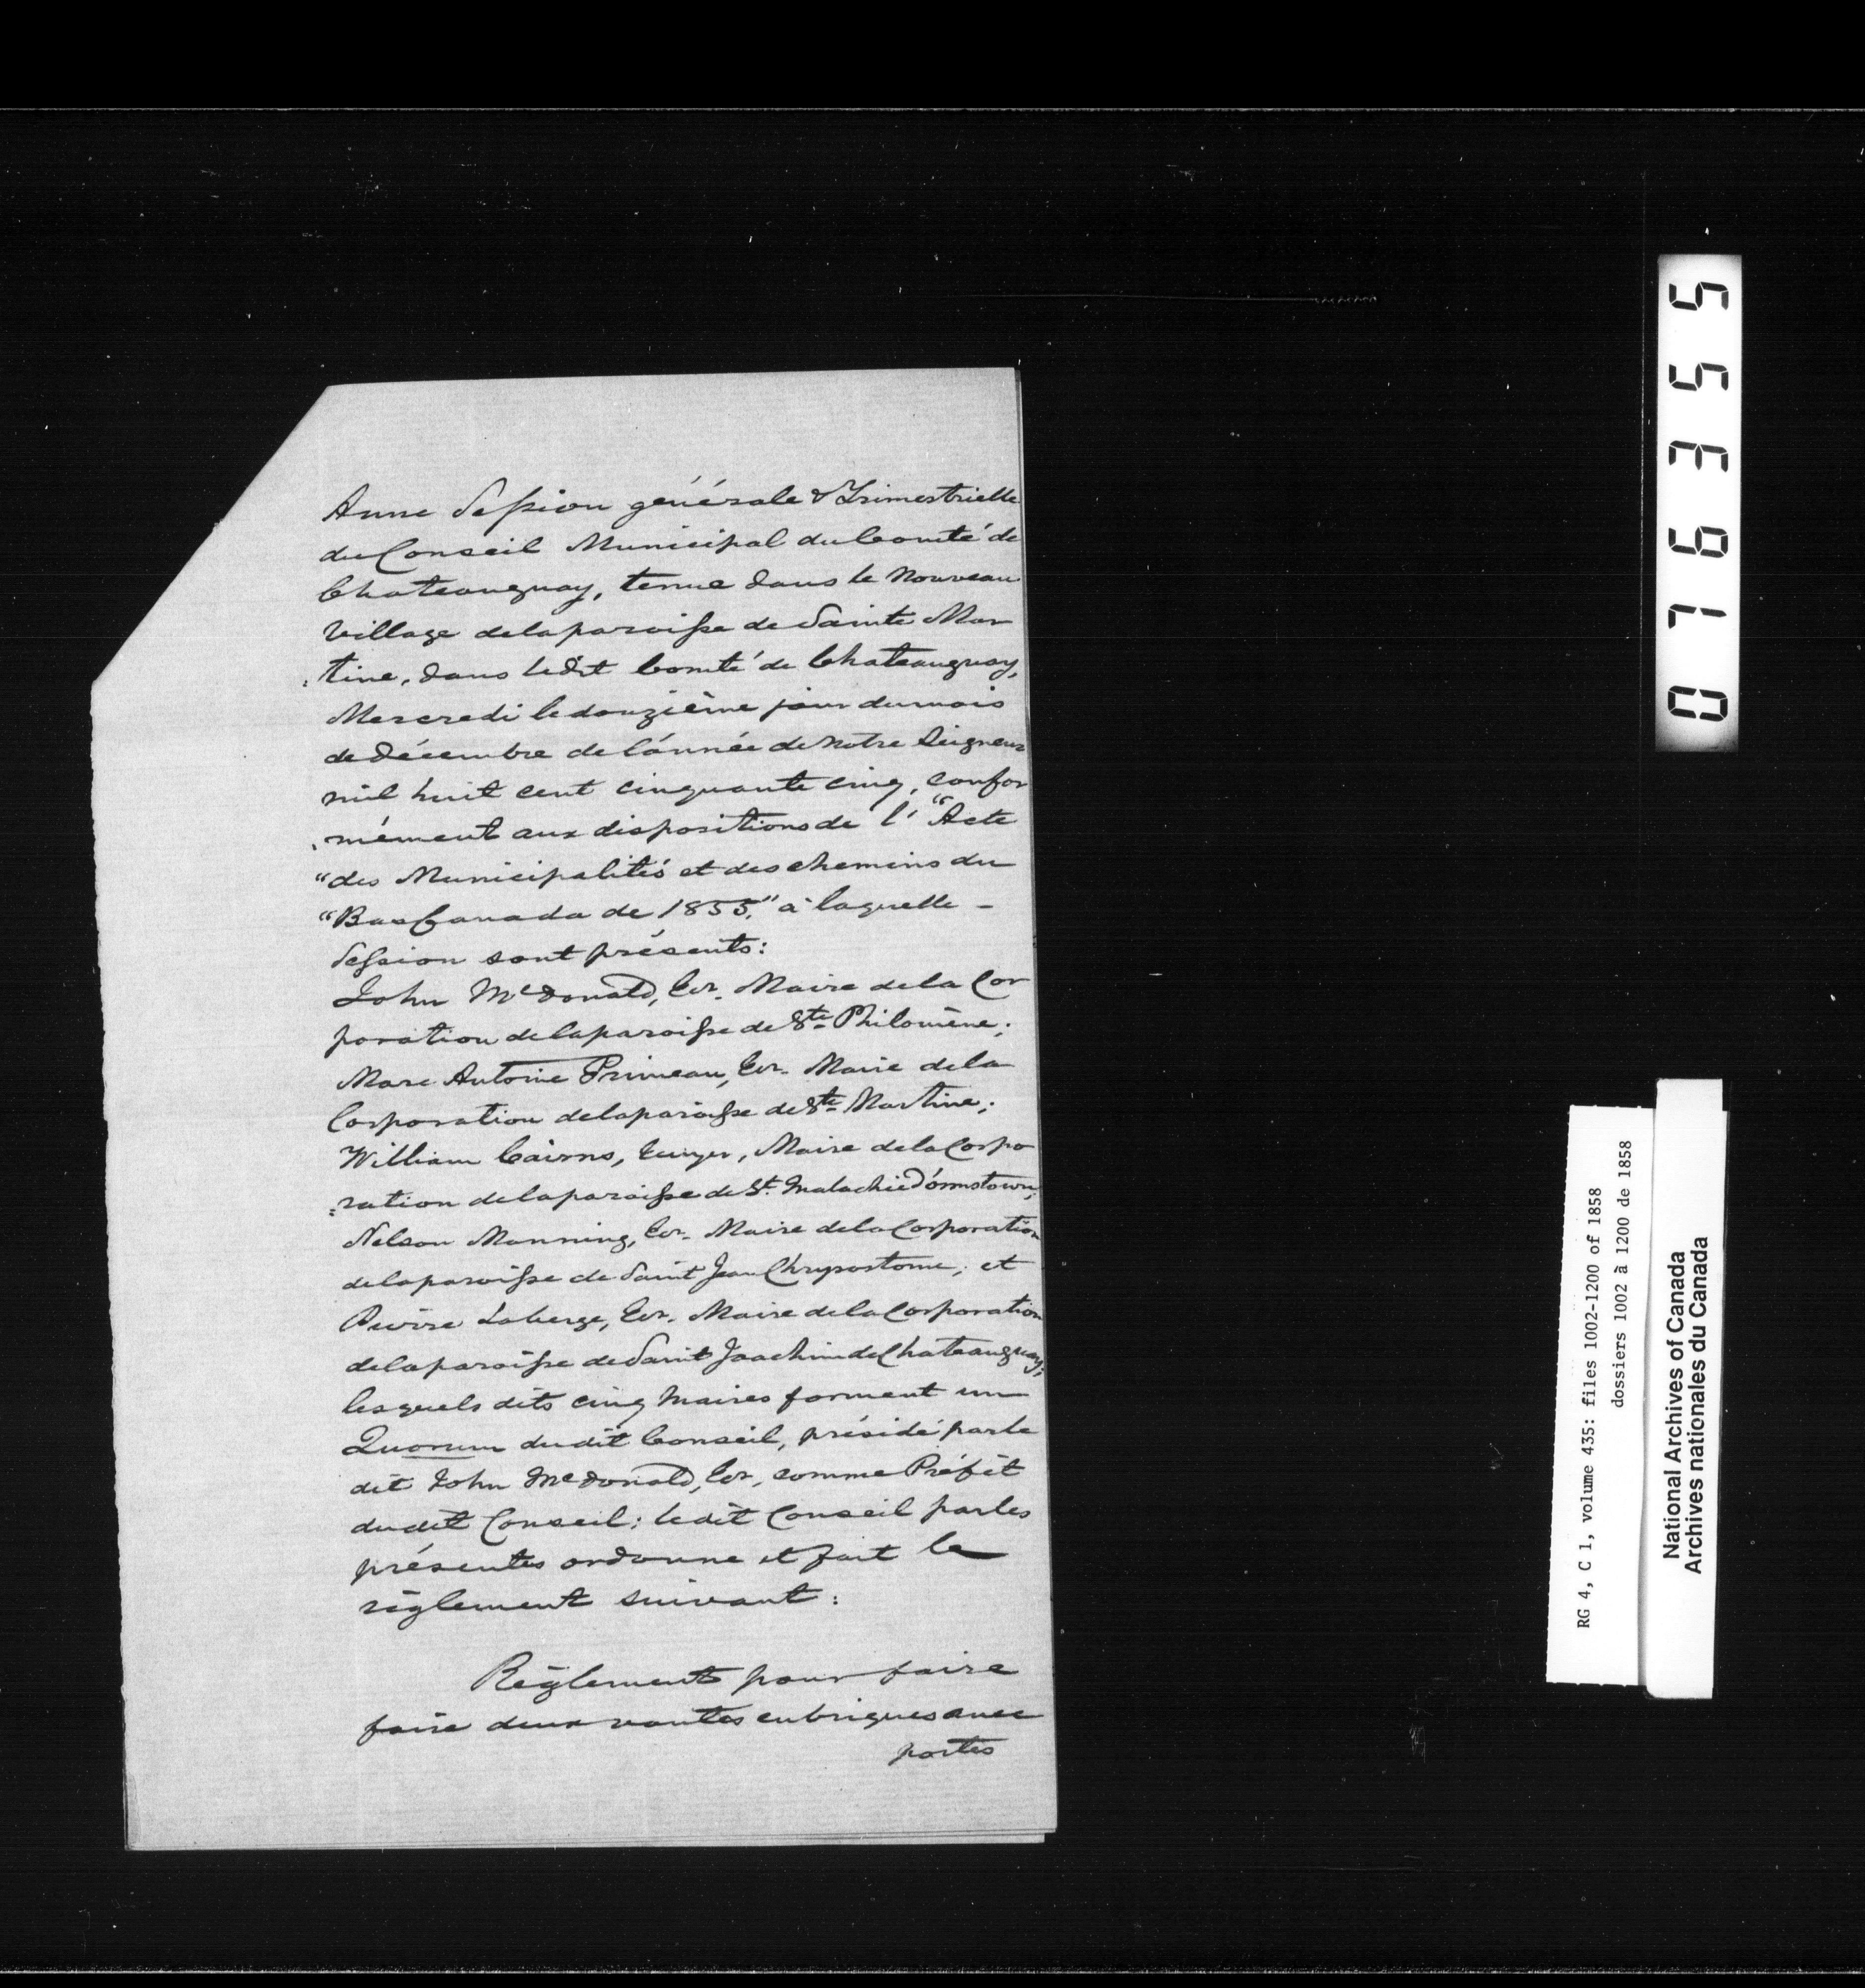 Aune Session générale & Trimestrielle
du Conseil Municipal du Comté de
Chateauguay, tenue dans le Nouveau
Village de la paroisse de Sainte Mar
=tine, dans ledit Comté de Chateauguay,
Mercredi le douzième jour du mois
de Décembre de l'année de Notre Seigneur
mil huit cent cinquante cinq, confor
=mément aux dispositions de l' "Acte
"des Municipalités et des chemins du
"Bas Canada de 1855," à laquelle -
Session sont présents:
John McDonald, Ecr. Maire de la Cor
poration de la paroisse de Ste Philomène;
Marc Antoine Primeau, Ecr. Maire de la
Corporation de la paroisse de Ste Martine;
William Cairns, Ecuyer, Maire de la Corpo
=ration de la paroisse de St. Malachie D'ormstown;
Nelson Manning, Ecr. Maire de la Corporation
de la paroisse de Saint Jean Chrysostome; et
Pierre Laberge, Ecr. Maire de la Corporation
de la paroisse de Saint Joachim de Chateauguay;
lesquels dits cinq Maires forment un
Quorum dudit Conseil, présidé par le
dit John McDonald, Ecr, comme Préfet
dudit Conseil; ledit Conseil par les
présentes ordonne et fait le
règlement suivant:
Règlement pour faire
faire deux voutes en briques avec
portes
076355
RG 4, C 1, volume 435: files 1002-1200 of 1858
dossiers 1002 à 1200 de 1858
National Archives of Canada
Archives nationales du Canada